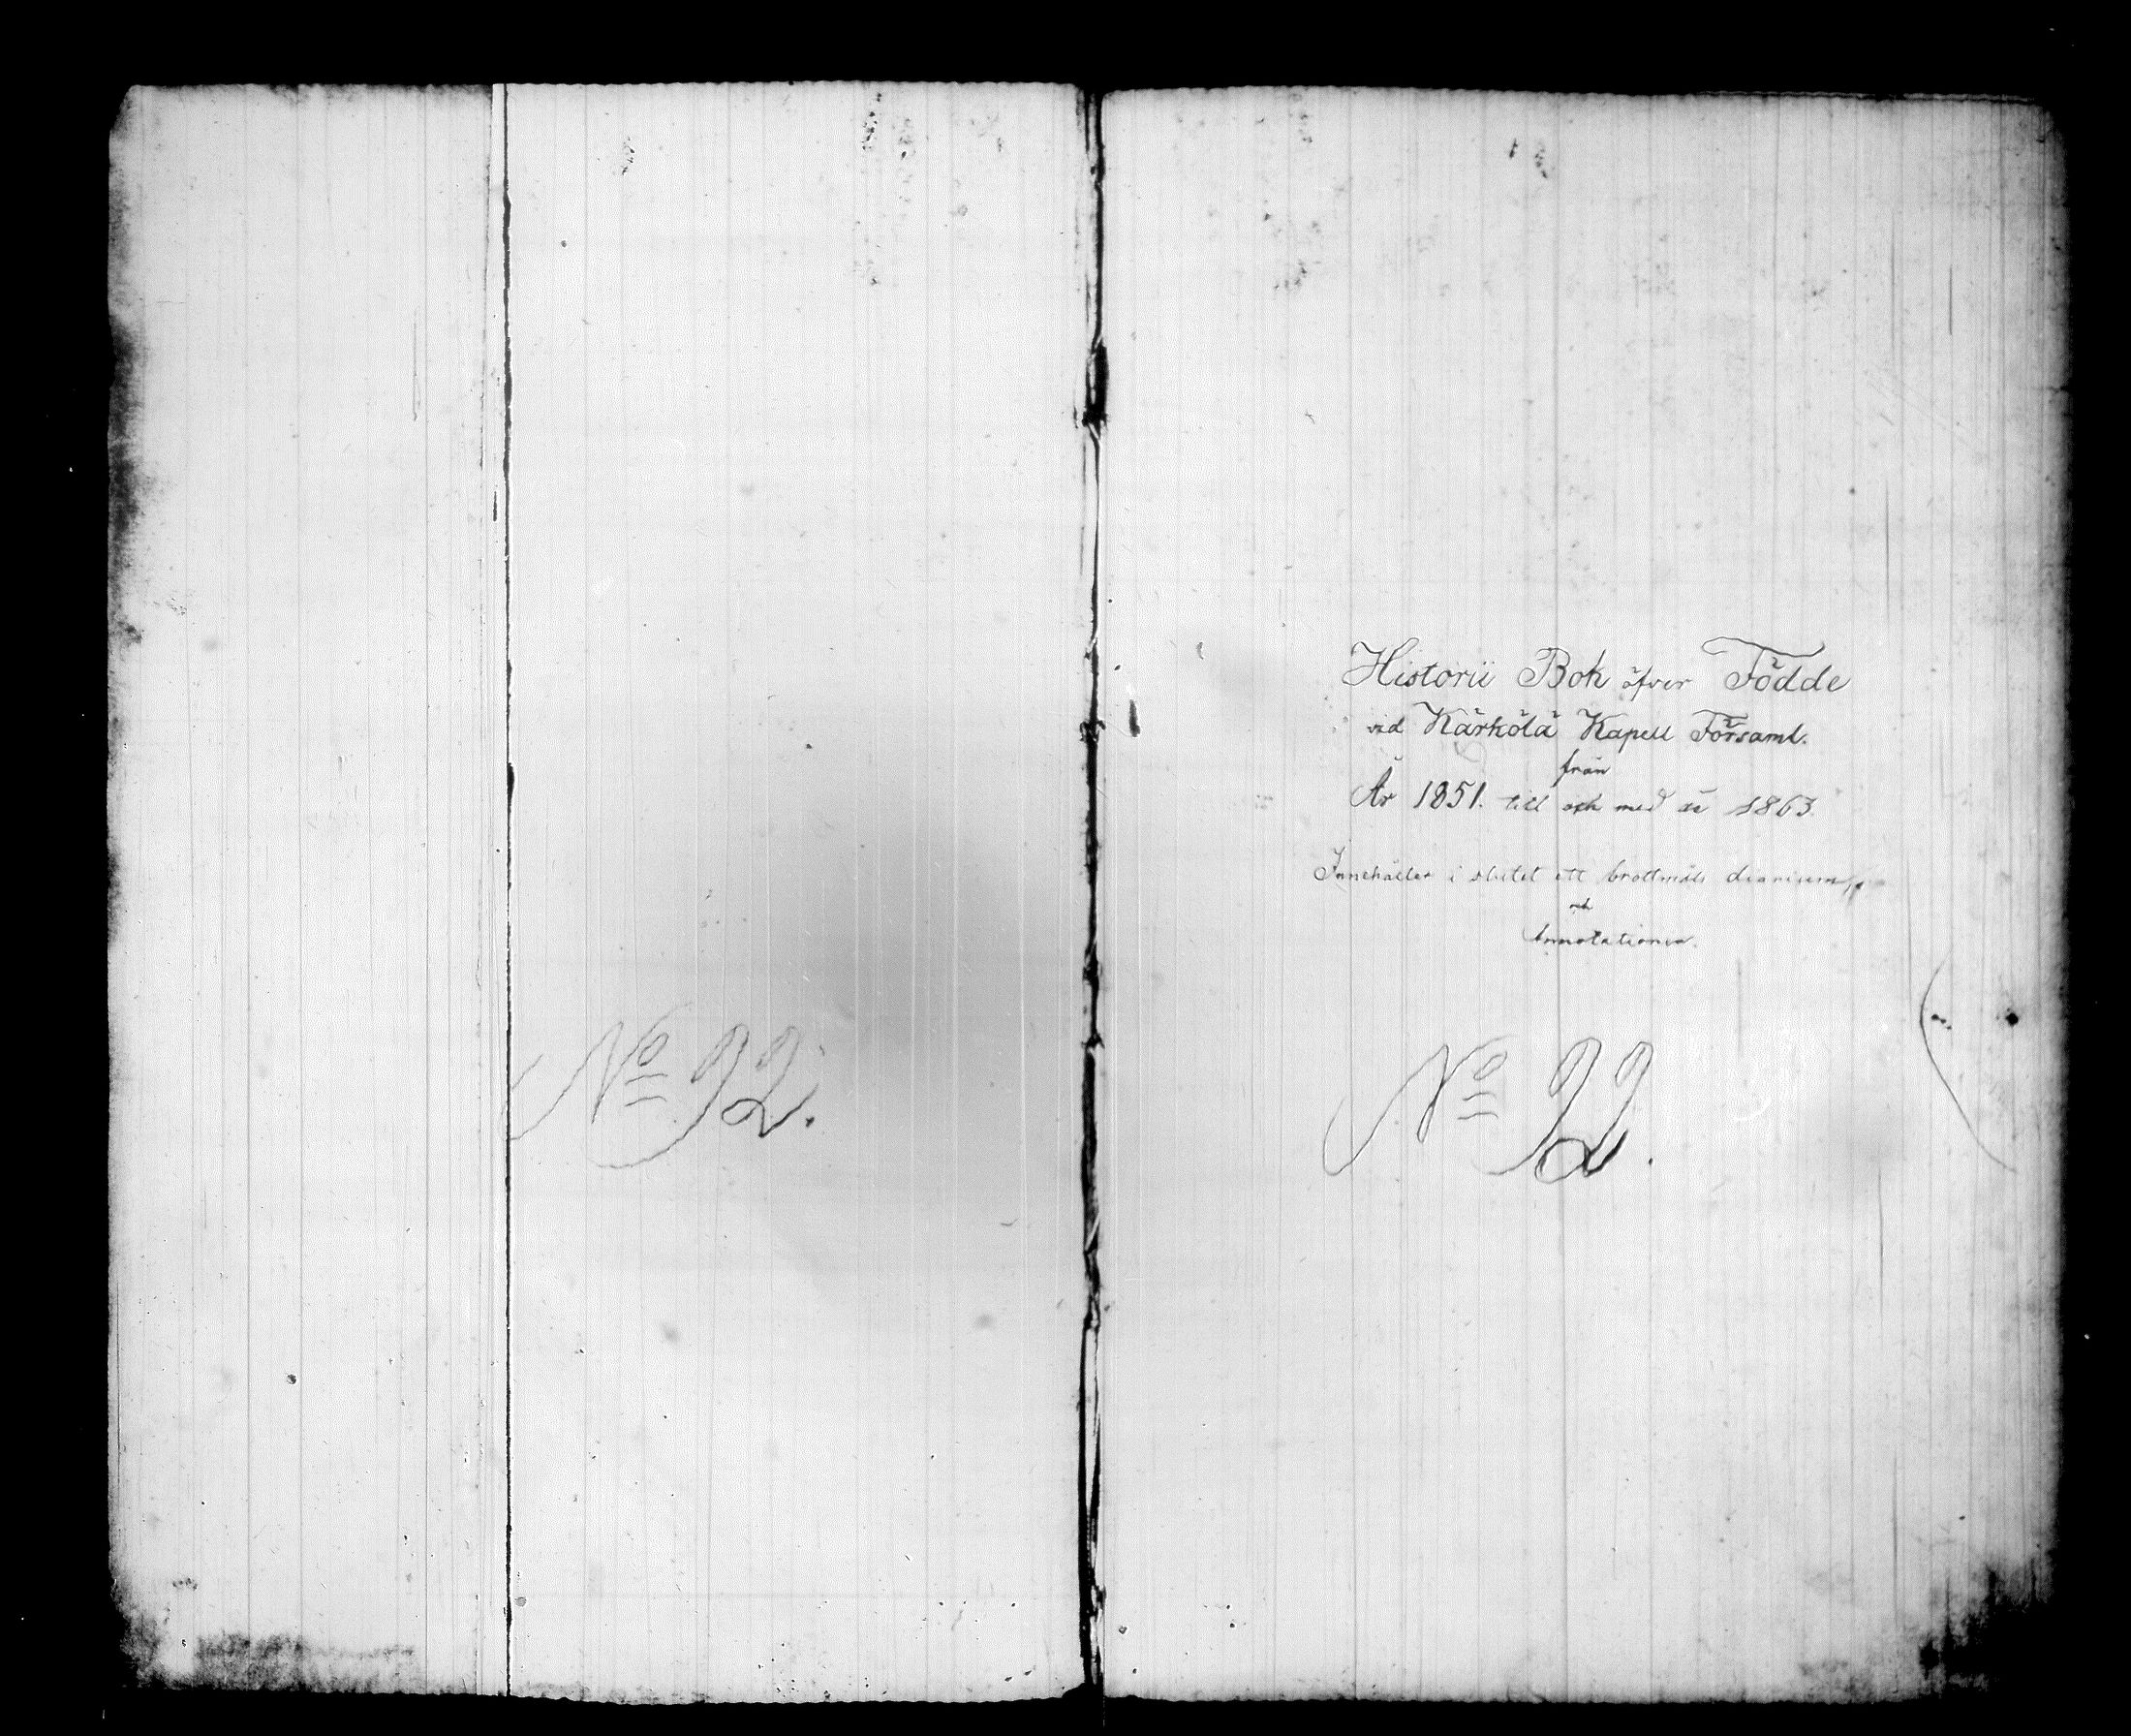 No 92.
Historii Bok öfver Födde
vid Kärkölä Kapell Församl.
från
År 1851. till och med år 1863.
Innehåller i slutet ett brottmåls diarium
och
Annotationer.
No 92.